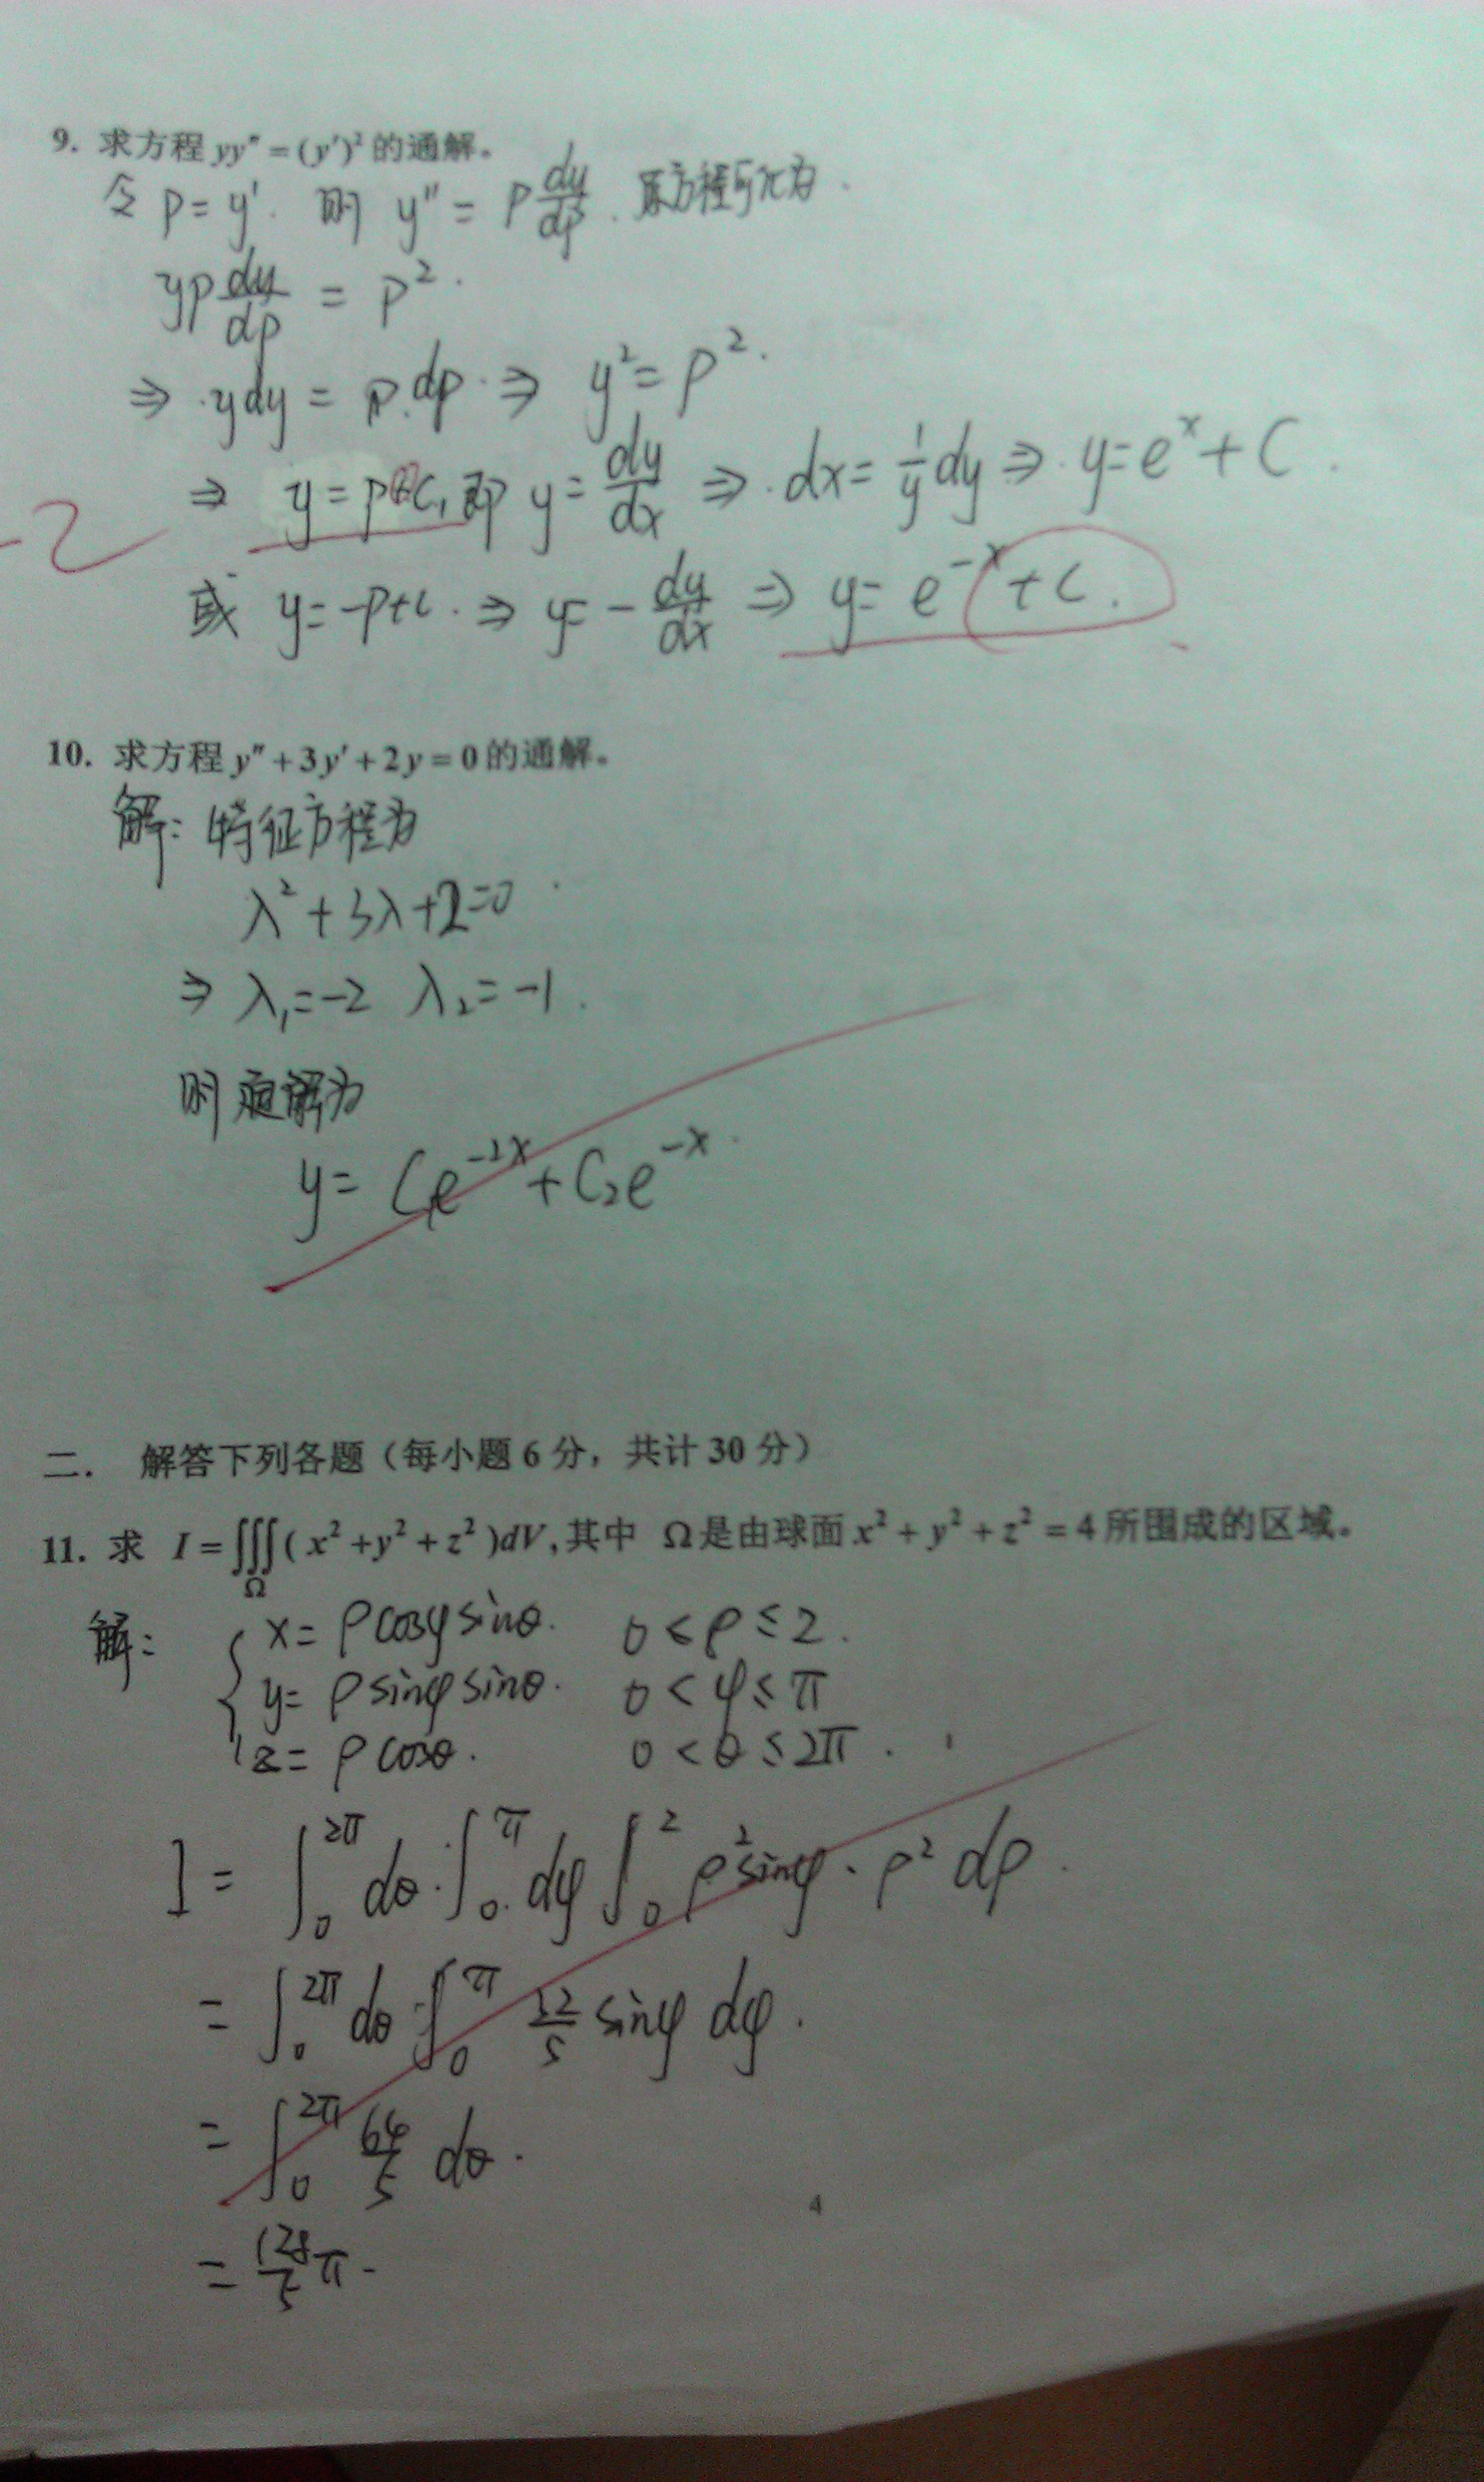 9. 求方程 yy″ = (y′)² 的通解。
令 p = y′. 则 y″ = p dy/dp. 原方程可化为.
yp dy/dp = p².
⇒ ydy = p.dp. ⇒ y² = p².
⇒ y = p C₁ 即 y = dy/dx ⇒ dx = 1/y dy ⇒ y = eˣ + C.
-2
或 y = -p+c. ⇒ y = - dy/dx ⇒ y = e⁻ˣ + C.
10. 求方程 y″ + 3y′ + 2y = 0 的通解。
解: 特征方程为
λ² + 3λ + 2 = 0
⇒ λ₁ = -2 λ₂ = -1.
则通解为
y = C₁e⁻²ˣ + C₂e⁻ˣ.
二. 解答下列各题（每小题 6 分，共计 30 分）
11. 求 I = ∭_Ω ( x² + y² + z² )dV, 其中 Ω 是由球面 x² + y² + z² = 4 所围成的区域。
解: { x = ρcosφsinθ. 0 < ρ ≤ 2.
y = ρsinφsinθ. 0 < φ ≤ π
z = ρcosθ. 0 < θ ≤ 2π.
I = ∫₀^2π dθ · ∫₀^π dφ ∫₀² ρ² sinφ · ρ² dρ.
= ∫₀^2π dθ · ∫₀^π 32/5 sinφ dφ.
= ∫₀^2π 64/5 dθ.
4
= 128/5 π.